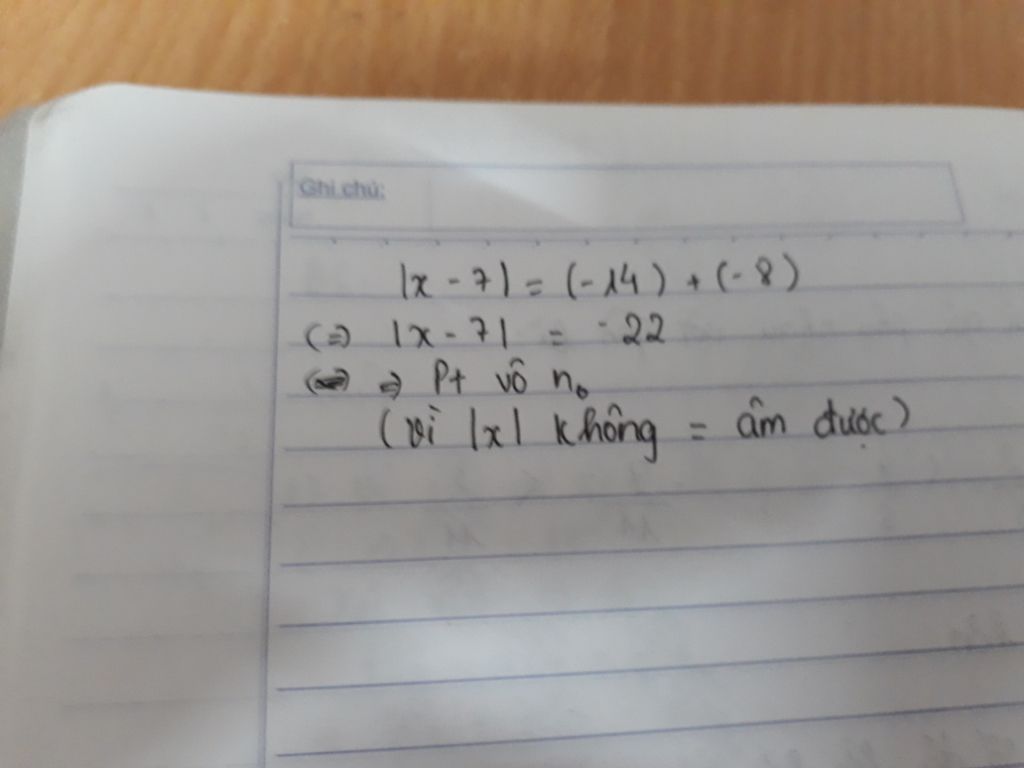 Ghi chú:
|x - 7| = (-14) + (-8)
(=) |x - 7| = -22
=) Pt vô n₀
(vì |x| không = âm được)